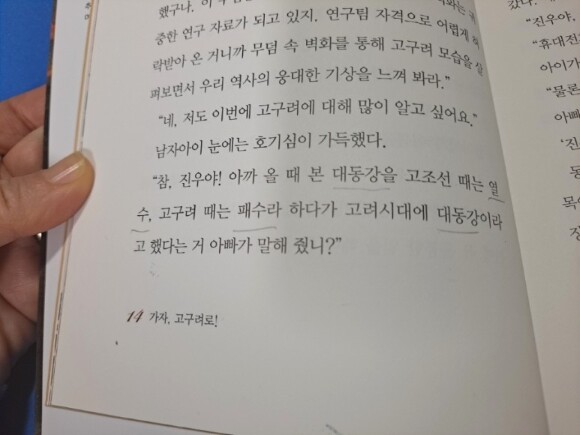 했구나. 이
벽화는 귀
중한 연구 자료가 되고 있지. 연구팀 자격으로 어렵게 허
락받아 온 거니까 무덤 속 벽화를 통해 고구려 모습을 살
펴보면서 우리 역사의 웅대한 기상을 느껴 봐라.”
“네, 저도 이번에 고구려에 대해 많이 알고 싶어요.”
남자아이 눈에는 호기심이 가득했다.
“참, 진우야! 아까 올 때 본 대동강을 고조선 때는 열
수, 고구려 때는 패수라 하다가 고려시대에 대동강이라
고 했다는 거 아빠가 말해 줬니?”
14 가자, 고구려로!
갔다.
“진우야,
“휴대전
아이가
“물론
아빠
‘진
동
목